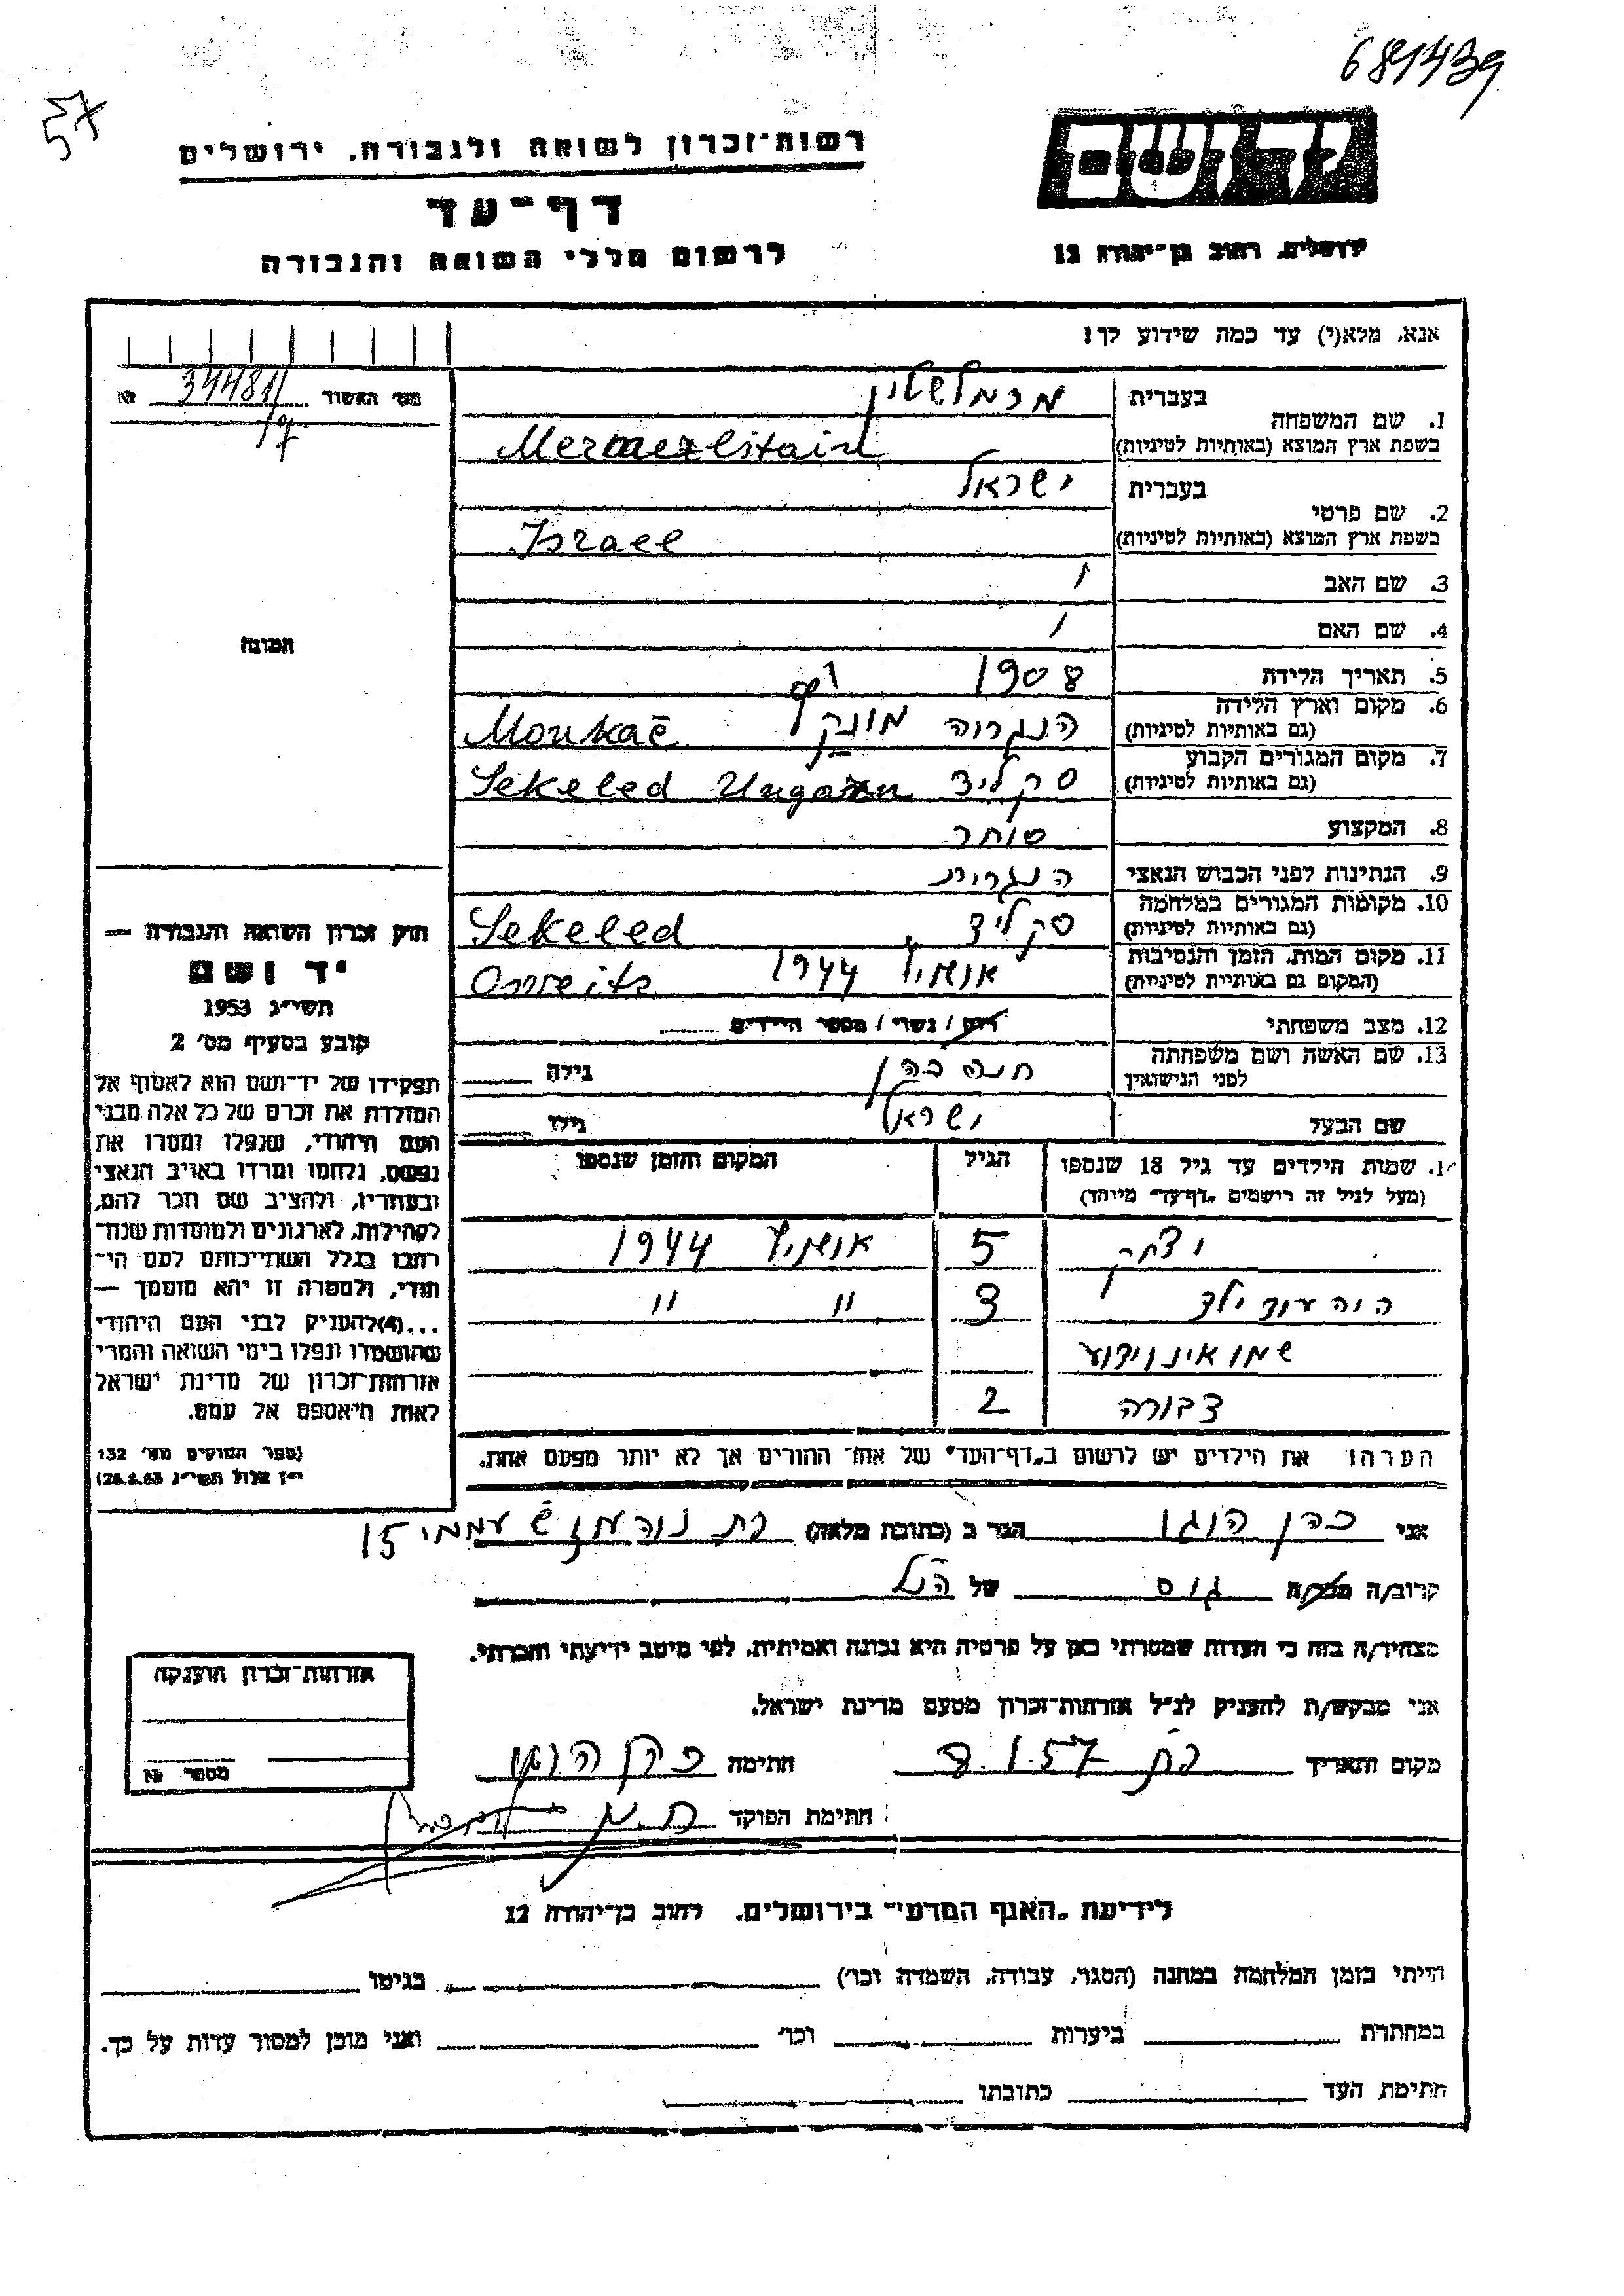 681439
57
יד ושם
ירושלים, רחוב בן־יהודה 12
רשות־זכרון לשואה ולגבורה, ירושלים
דף־עד
לרשום חללי השואה והגבורה
אנא, מלא(י) עד כמה שידוע לך!
מס׳ האשור 344811 №
17
בעברית
1. שם המשפחה
בשפת ארץ המוצא (באותיות לטיניות)
מרמלשטיין
בעברית ישראל
2. שם פרטי
בשפת ארץ המוצא (באותיות לטיניות) Israel
3. שם האב /
4. שם האם /
5. תאריך הלידה 1908
6. מקום וארץ הלידה
(גם באותיות לטיניות)
הנגריה Mounkač
7. מקום המגורים הקבוע
(גם באותיות לטיניות)
סקליד Sekeled
8. המקצוע סוחר
9. הנתינות לפני הכבוש הנאצי הנגרית
10. מקומות המגורים במלחמה
(גם באותיות לטיניות)
סקליד Sekeled
11. מקום המות, הזמן והנסיבות
(המקום גם באותיות לטיניות)
אושויץ 1944
12. מצב משפחתי רוק / נשוי / מספר הילדים
13. שם האשה ושם משפחתה
לפני הנישואין
חנה כהן גילה
שם הבעל ישראל גילו
14. שמות הילדים עד גיל 18 שנספו
(מעל לגיל זה רושמים „דף־עד״ מיוחד)
הגיל
המקום והזמן שנספו
יצחק 5 אושויץ 1944
היה עוד ילד 3 " "
שמו אינו ידוע
צבורה 2
הערה: את הילדים יש לרשום ב„דף־העד״ של אחד ההורים אך לא יותר מפעם אחת.
התמונה
חוק זכרון השואה והגבורה —
יד ושם
תשי״ג 1953
קובע בסעיף מס׳ 2
תפקידו של יד־ושם הוא לאסוף אל
המולדת את זכרם של כל אלה מבני
העם היהודי, שנפלו ומסרו את
נפשם, נלחמו ומרדו באויב הנאצי
ובעוזריו, ולהציב שם וזכר להם,
לקהילות, לארגונים ולמוסדות שנח־
רבו בגלל השתייכותם לעם הי־
הודי, ולמטרה זו יהא מוסמך —
...(4) להעניק לבני העם היהודי
שהושמדו ונפלו בימי השואה והמרי
אזרחות־זכרון של מדינת ישראל
לאות היאספם אל עמם.
(ספר החוקים מס׳ 132
י״ז אלול תשי״ג 28.8.53)
אני כהן הוגו הגר ב (כתובת מלאה) 15
קרוב/ה מכר/ה גיס של הנ״ל
מצהיר/ה בזה כי העדות שמסרתי כאן על פרטיה היא נכונה ואמיתית, לפי מיטב ידיעתי והכרתי.
אני מבקש/ת להעניק לנ״ל אזרחות־זכרון מטעם מדינת ישראל.
מקום ותאריך 8.1.57 חתימה כהן הוגו
חתימת הפוקד
אזרחות־זכרון הוענקה
מספר №
לידיעת „האגף המדעי״ בירושלים, רחוב בן־יהודה 12
הייתי בזמן המלחמה במחנה (הסגר, עבודה, השמדה וכו׳) בגיטו
במחתרת ביערות וכו׳ ואני מוכן למסור עדות על כך.
חתימת העד כתובתו